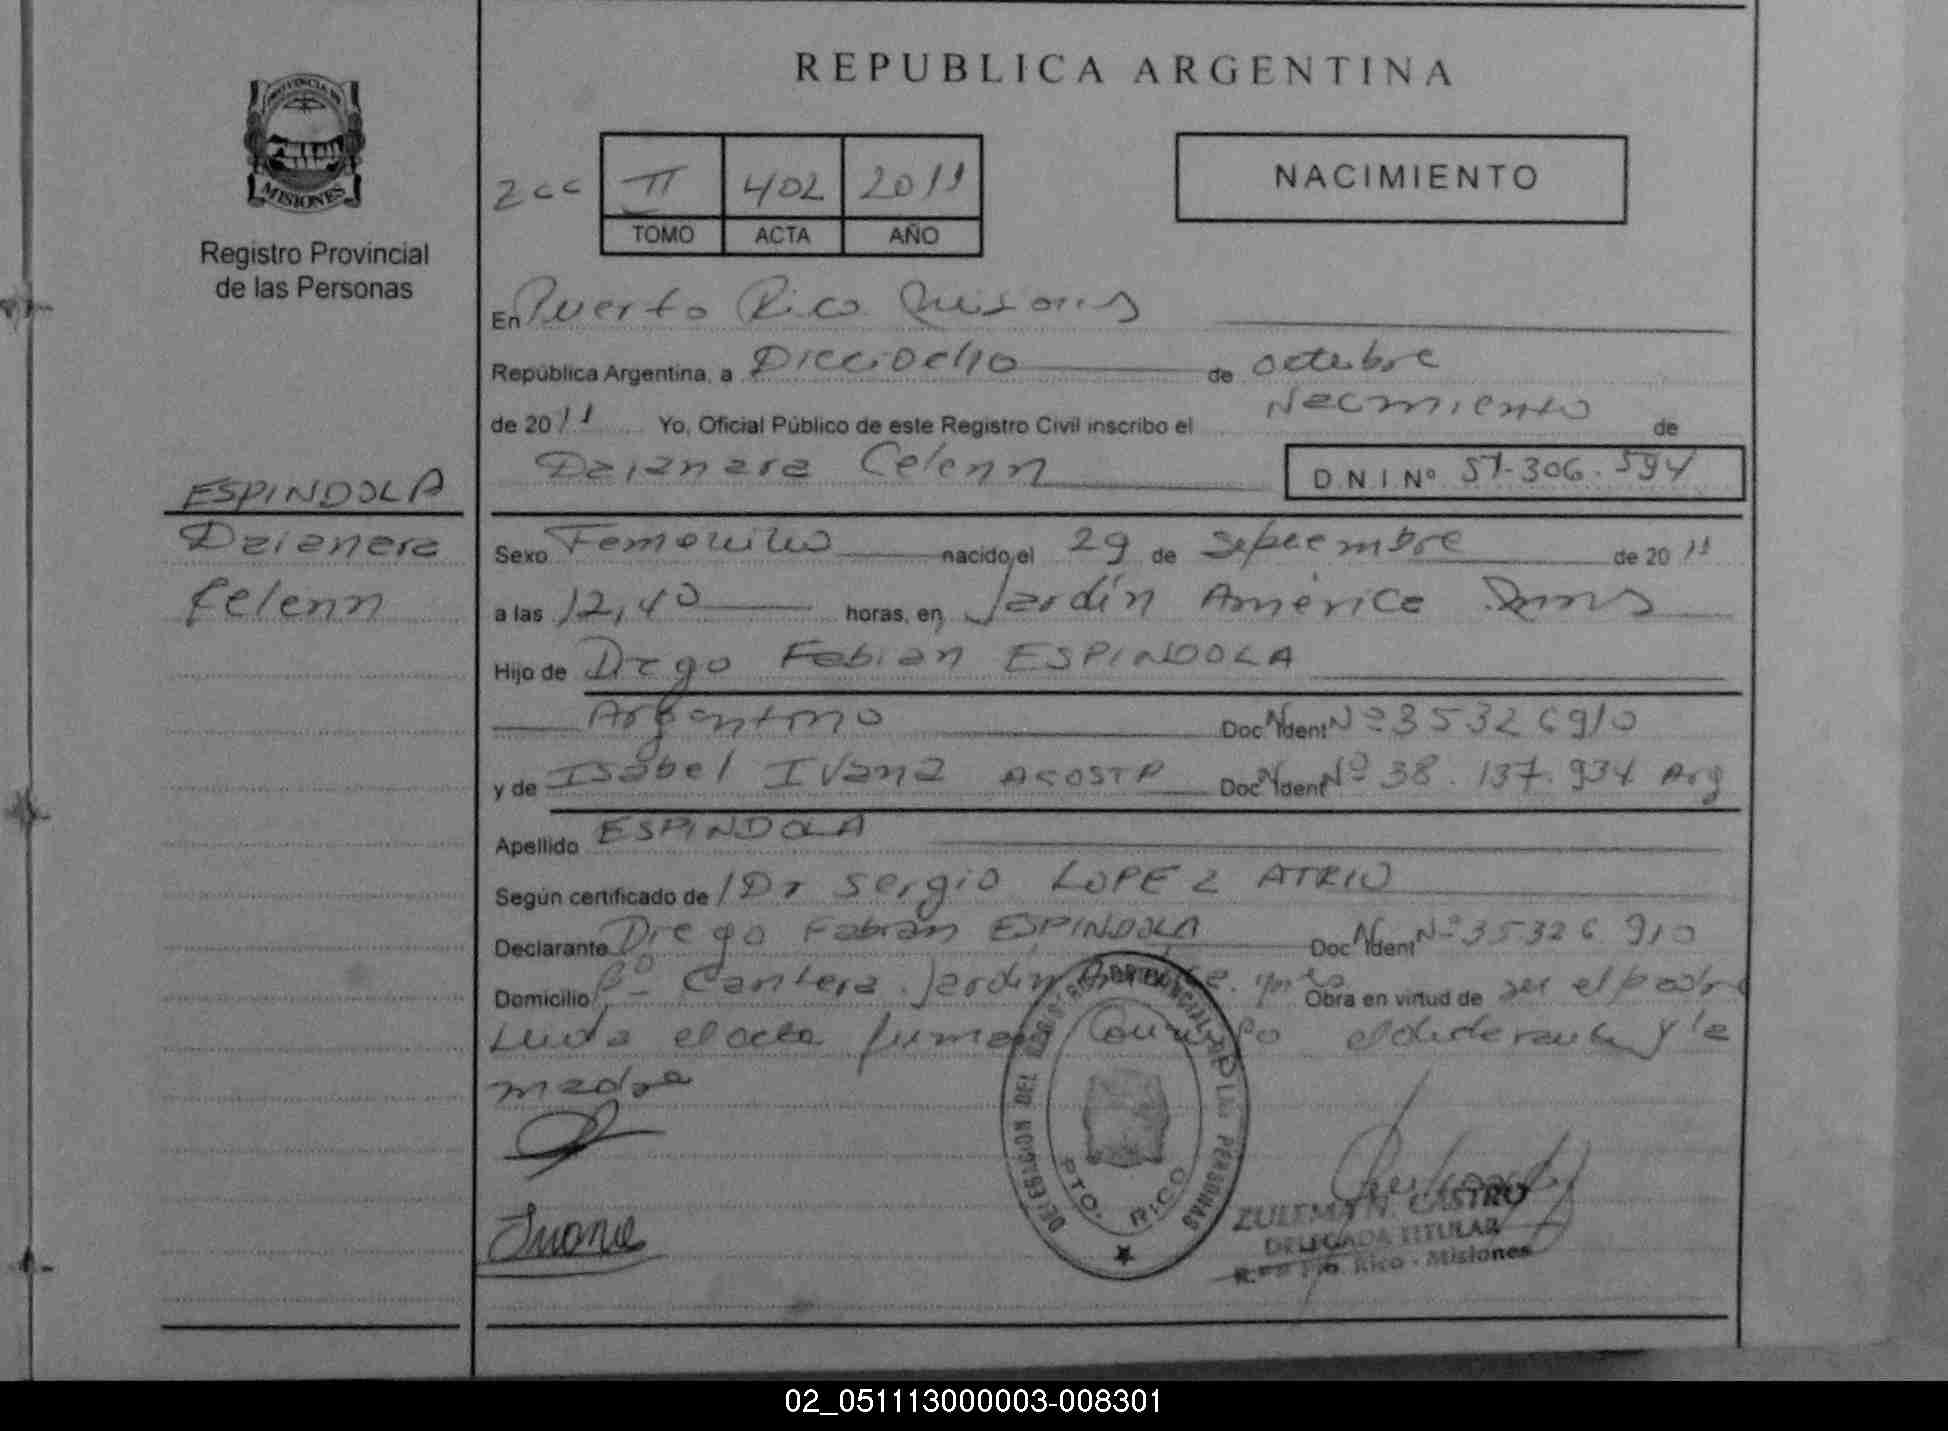 REPUBLICA ARGENTINA
PROVINCIA DE
MISIONES
Registro Provincial
de las Personas
ESPINDOLA
Daianara
Celenn
II 402 2011
TOMO ACTA AÑO
NACIMIENTO
En Puerto Rico Misiones
República Argentina, a Dieciocho de octubre
de 2011 Yo, Oficial Público de este Registro Civil inscribo el Nacimiento de
Daianara Celenn D.N.I. Nº 51.306.594
Sexo Femenino nacido el 29 de Septiembre de 2011
a las 12,40 horas, en Jardín América Mnes
Hijo de Diego Fabian ESPINDOLA
Argentino Doc N Ident Nº 35326910
y de Isabel Ivana ACOSTA Doc N Ident Nº 38.137.934 Arg
Apellido ESPINDOLA
Según certificado de Dr Sergio LOPEZ ATRIO
Declarante Diego Fabian ESPINDOLA Doc N Ident Nº 35326910
Domicilio Bº Cantera Jardín América Obra en virtud de ser el padre
Leida el acta firma el declarante y la
madre
DELEGACION DEL REGISTRO PROVINCIAL DE LAS PERSONAS
PTO. RICO
ZULEMA N. CASTRO
DELEGADA TITULAR
Pto. Rico - Misiones
02_051113000003-008301